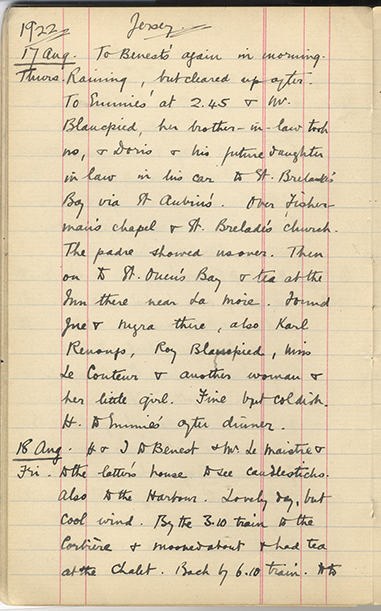 1922 Jersey
17 Aug. To Benest's again in morning.
Thurs. Raining, but cleared up after.
To Emmies' at 2.45 & Mr.
Blampied, her brother-in-law took
us, & Doris & his future daughter
in law in his car to St. Brelade's
Bay via St Aubin's. Over Fisher-
man's chapel & St. Brelade's church.
The padre showed us over. Then
on to St. Ouen's Bay & tea at the
Inn there near La Moie. Found
& Myra there, also Karl
Renoufs, Roy Blampied, Miss
Le Couteur & another woman &
her little girl. Fine but coldish.
H. to Emmies' after dinner.
18 Aug. H & I to Benest & Mr. Le Maistre &
Fri. to the latter's house to see candlesticks.
Also to the Harbour. Lovely day, but
cool wind. By the 3.10 train to the
Corbière & mooned about & had tea
at the Chalet. Back by 6.10 train.